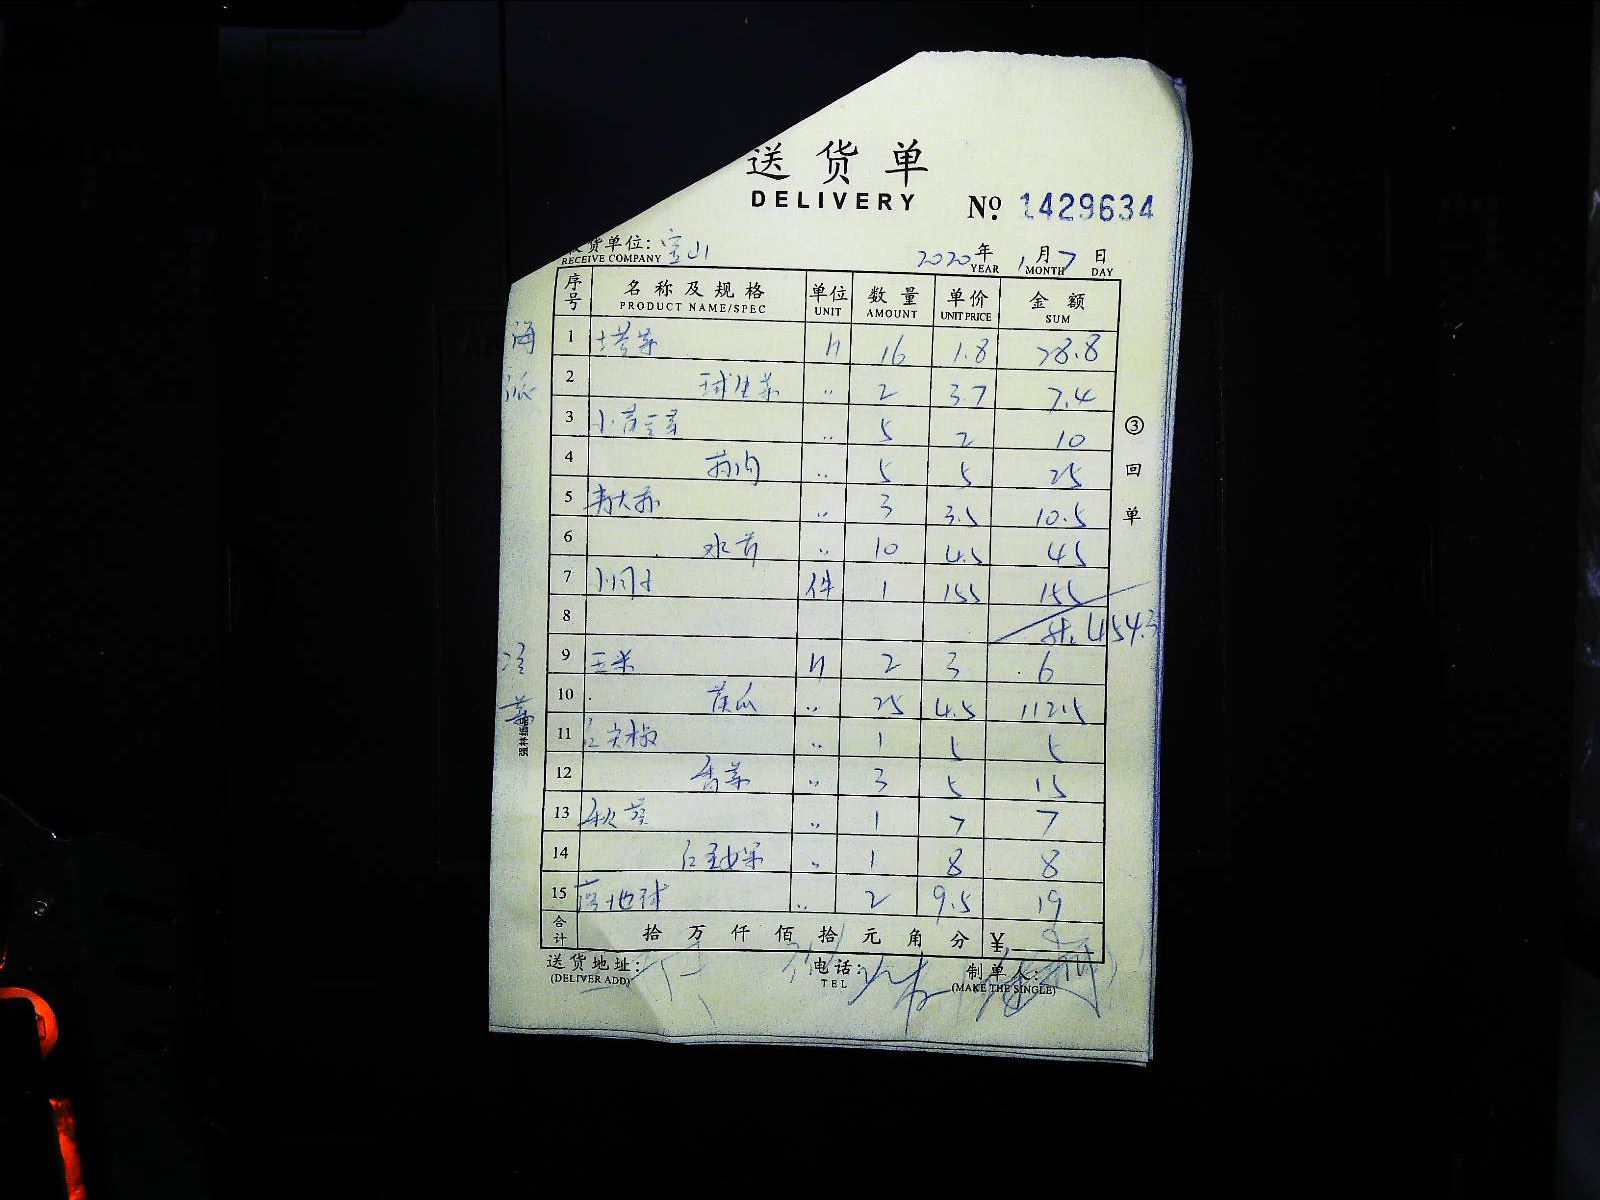 送货单
DELIVERY
№ 1429634
收货单位: 宝山 2020年 1月 7日
RECEIVE COMPANY YEAR MONTH DAY
序号 名称及规格 单位 数量 单价 金额
PRODUCT NAME/SPEC UNIT AMOUNT UNIT PRICE SUM
1 塔菜 斤 16 1.8 28.8
2 球生菜 〃 2 3.7 7.4
3 〃 5 2 10
4 〃 5 5 25
5 青大蒜 〃 3 3.5 10.5
6 水芹 〃 10 4.5 45
7 件 1 155 155
8 454.3
9 玉米 斤 2 3 6
10 黄瓜 〃 25 4.5 112.5
11 红尖椒 〃 1 5 5
12 香菜 〃 3 5 15
13 秋葵 〃 1 7 7
14 〃 1 8 8
15 〃 2 9.5 19
合计 拾 万 仟 佰 拾 元 角 分 ¥
送货地址: 电话: 制单人:
(DELIVER ADD) TEL (MAKE THE SINGLE)
③回单
强林纸品